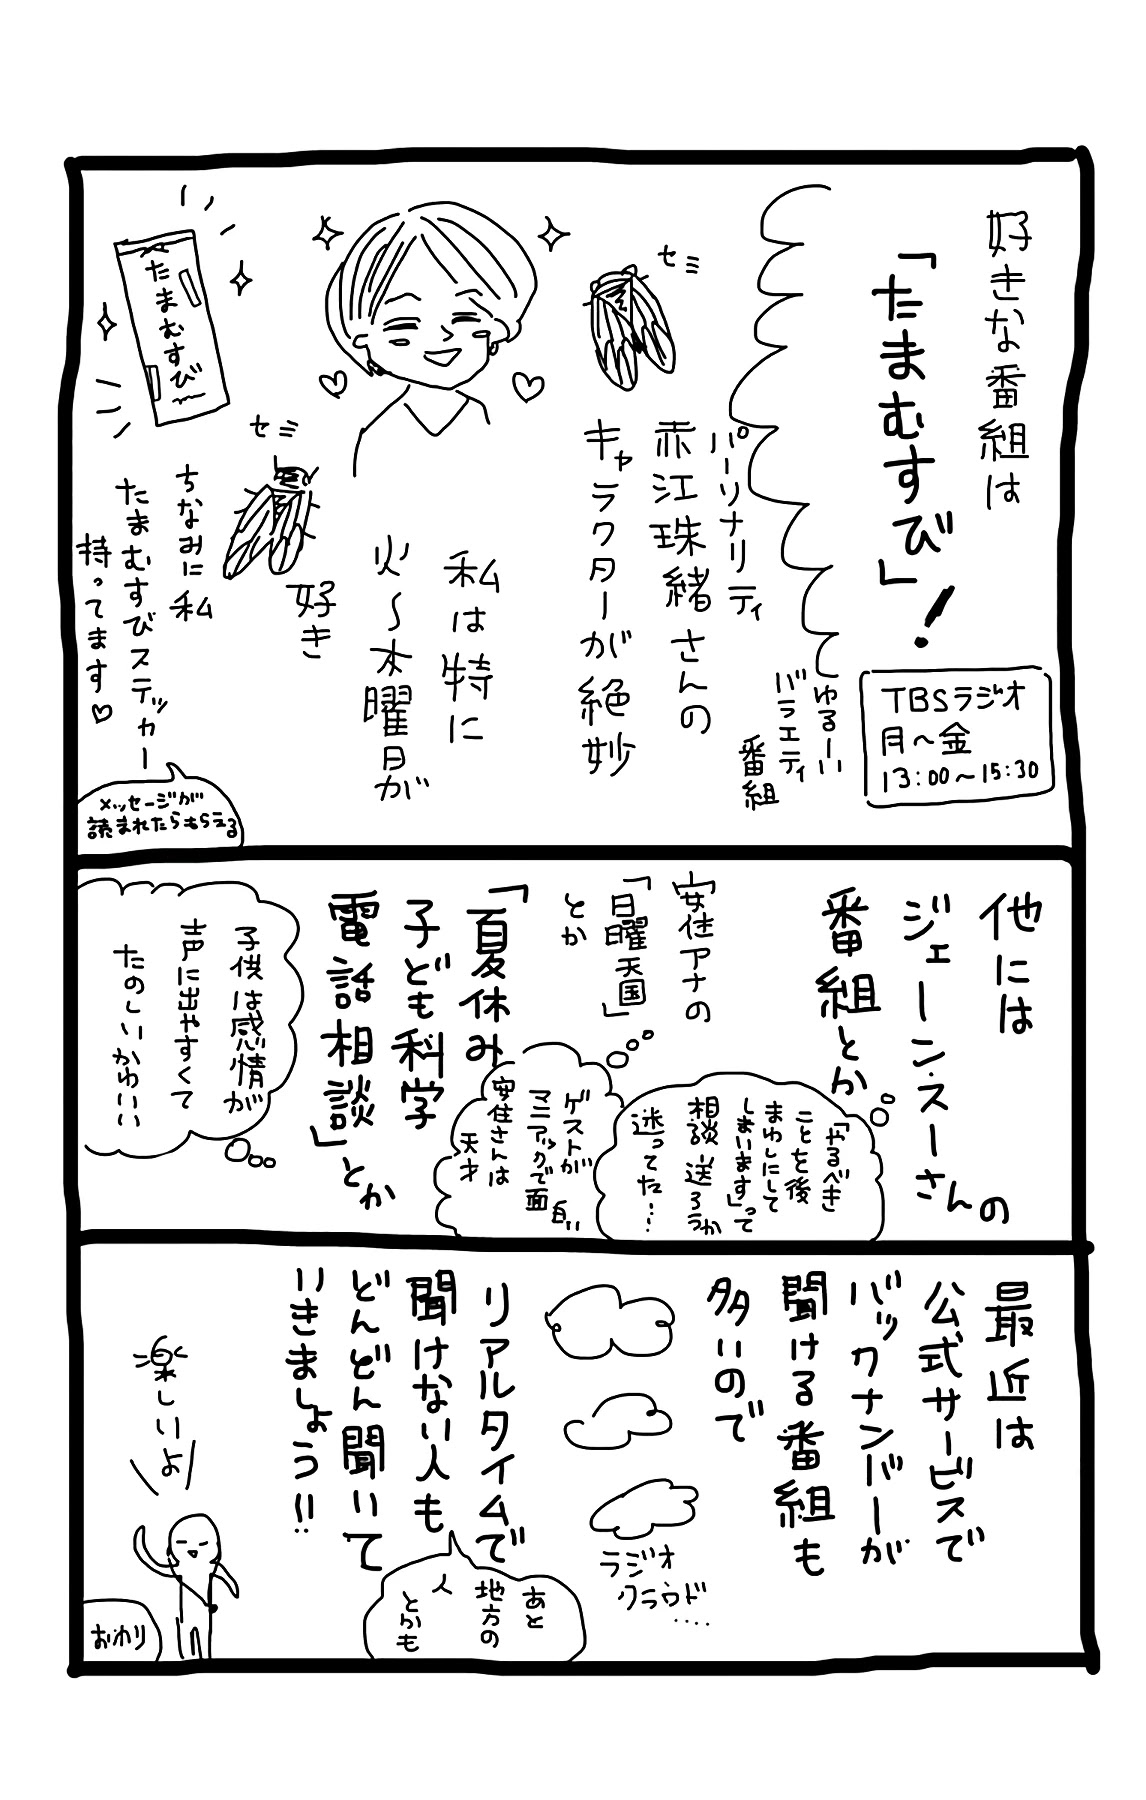 好きな番組は
「たまむすび」!
TBSラジオ
月〜金
13:00〜15:30
ゆるーい
バラエティ
番組
パーソナリティ
赤江珠緒さんの
キャラクターが絶妙
セミ
私は特に
火〜木曜日が
好き
セミ
たまむすび
ちなみに私
たまむすびステッカー
持ってます♡
メッセージが
読まれたらもらえる
他には
ジェーン・スーさんの
番組とか
「やるべき
ことを後
まわしにして
しまいます」って
相談送ろうか
迷ってた…
安住アナの
「日曜天国」
とか
ゲストが
マニアックで面白い
安住さんは
天才
「夏休み
子ども科学
電話相談」とか
子供は感情が
声に出やすくて
たのしいかわいい
最近は
公式サービスで
バックナンバーが
聞ける番組も
多いので
ラジオ
クラウド
....
リアルタイムで
聞けない人も
どんどん聞いて
いきましょう!!
あと
地方の
人
とかも
楽しいよ
おわり